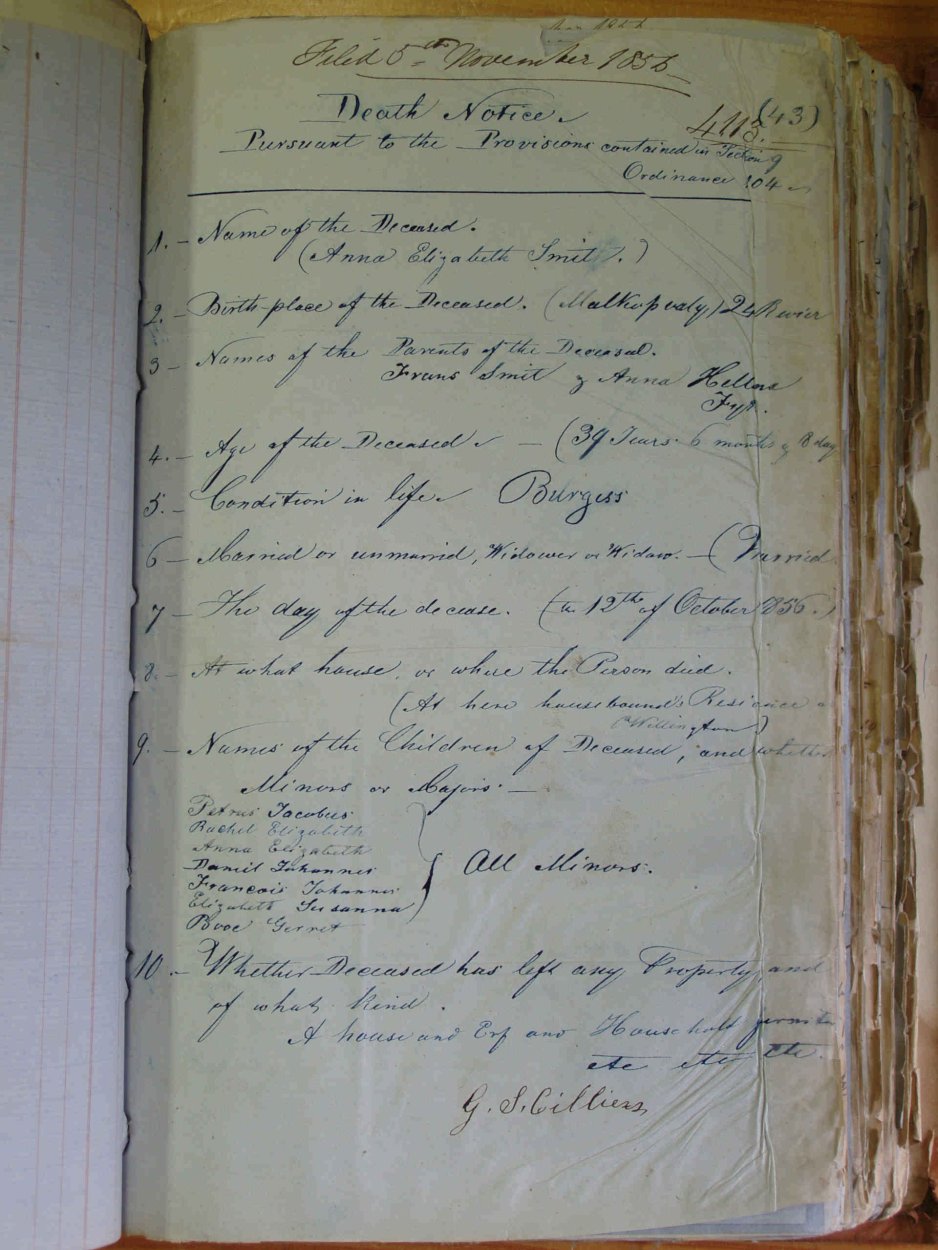 Filed 5th November 1856
Death Notice
4113. (43)
Pursuant to the Provisions contained in Section 9
Ordinance 104
1. - Name of the Deceased.
(Anna Elizabeth Smit.)
2. - Birth-place of the Deceased. (Malkopvaly) 24 Rivier
3 - Names of the Parents of the Deceased.
Frans Smit & Anna
4. - Age of the Deceased - (39 Years 6 months & 8 day
5. - Condition in life. Burgess
6 - Married or unmarried, Widower or Widow. - (Married
7 - The day of the decease. (the 12th of October 1856.)
8. - At what house, or where the Person died.
(At here housebound's
Wellington)
9. - Names of the Children of Deceased, and whether
Minors or Majors. -
Petrus Jacobus
Rachel Elizabeth
Anna Elizabeth
Daniel Johannes
Francois Johannes
Elizabeth Susanna
Gerret
All Minors.
10. - Whether Deceased has left any Property, and
of what kind.
A house and Erf and Household
etc etc etc.
G. S. Cilliers